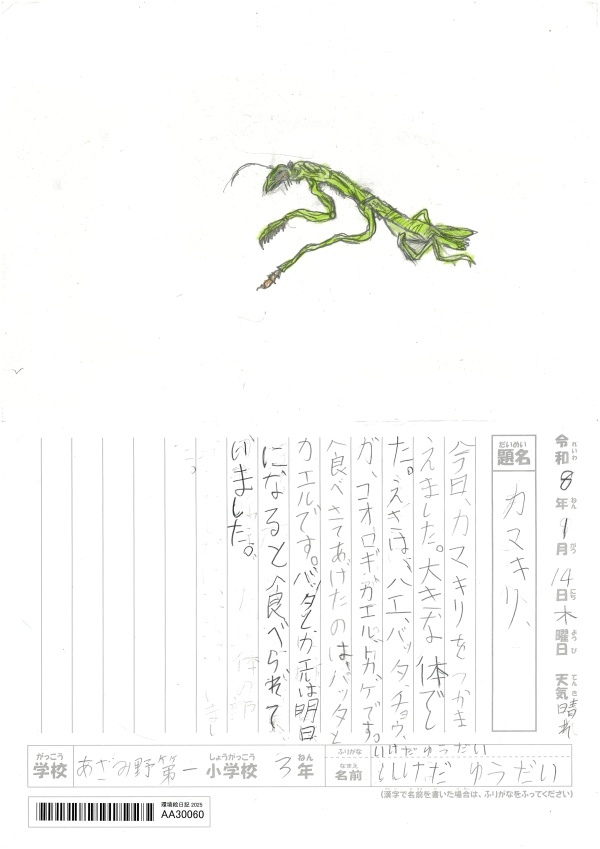 令和8年1月14日木曜日 天気晴れ
れいわ ねん がつ にち ようび てんき
だいめい
題名 カマキリ、
今日、カマキリをつかま
えました。大きな体でし
た。えさは、ハエ、バッタ、チョウ、
ガ、コオロギ、ガエル、トカゲです。
食べさてあげたのは、バッタと
カエルです。バッタとカエルは明日
になると食べられて
いました。
がっこう しょうがっこう ねん ふりがな いけだゆうだい
学校 あざみ野第一 小学校 3年 なまえ 名前 いけだ ゆうだい
(漢字で名前を書いた場合は、ふりがなをふってください)
環境絵日記 2025
AA30060